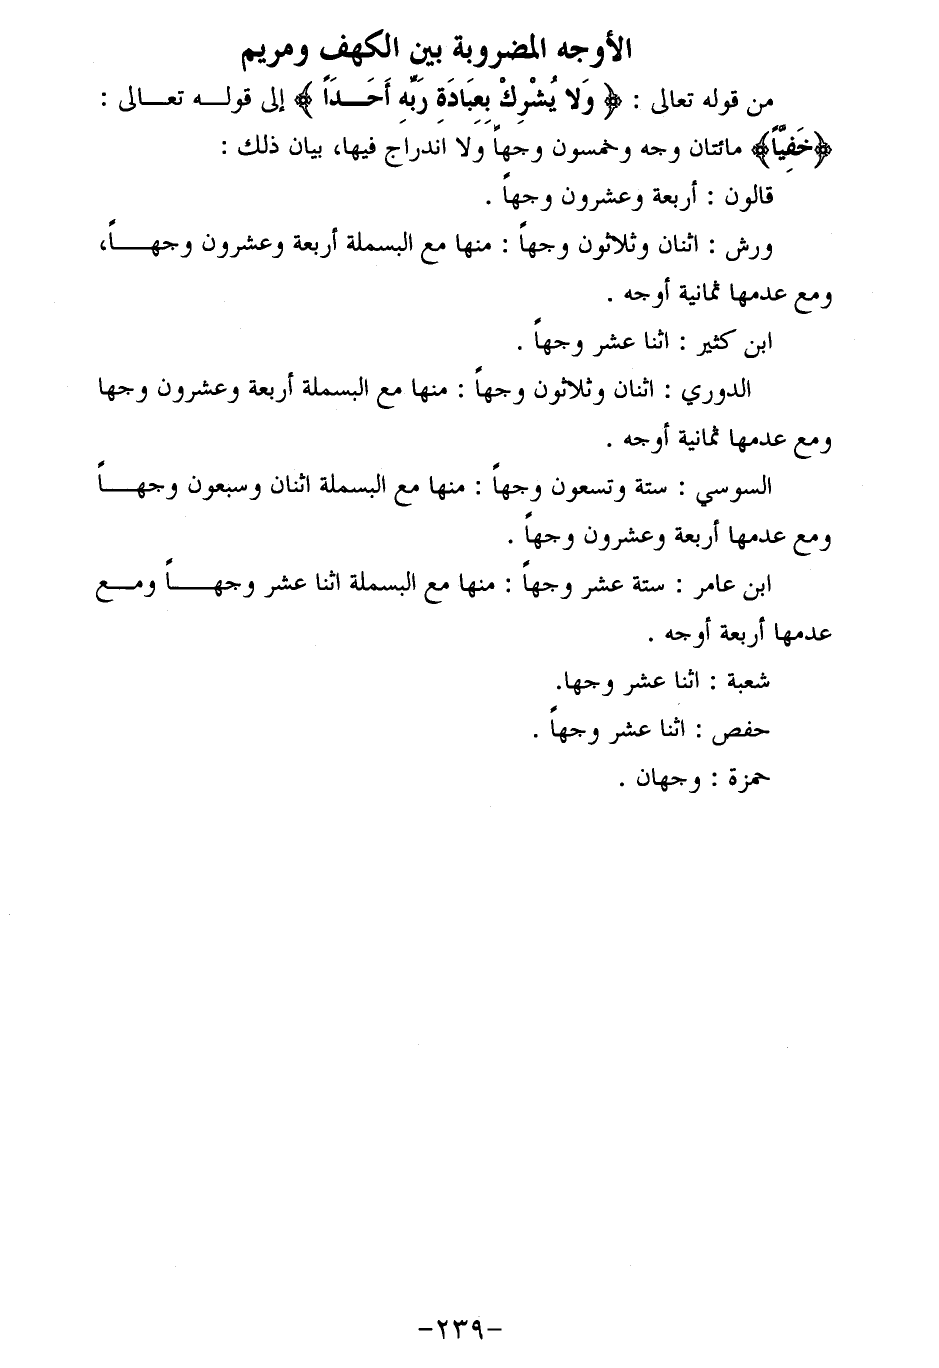 الأوجه المضروبة بين الكهف ومريم
من قوله تعالى : ﴿ وَلا يُشْرِكْ بِعِبَادَةِ رَبِّهِ أَحَـــدَاً ﴾ إلى قولـــه تعـــالى :
﴿خَفِيَّاً﴾ مائتان وجه وخمسون وجهاً ولا اندراج فيها، بيان ذلك :
قالون : أربعة وعشرون وجهاً .
ورش : اثنان وثلاثون وجهاً : منها مع البسملة أربعة وعشرون وجهـــاً،
ومع عدمها ثمانية أوجه .
ابن كثير : اثنا عشر وجهاً .
الدوري : اثنان وثلاثون وجهاً : منها مع البسملة أربعة وعشرون وجها
ومع عدمها ثمانية أوجه .
السوسي : ستة وتسعون وجهاً : منها مع البسملة اثنان وسبعون وجهـــاً
ومع عدمها أربعة وعشرون وجهاً .
ابن عامر : ستة عشر وجهاً : منها مع البسملة اثنا عشر وجهـــاً ومـــع
عدمها أربعة أوجه .
شعبة : اثنا عشر وجها.
حفص : اثنا عشر وجهاً .
حمزة : وجهان .
-٢٣٩-